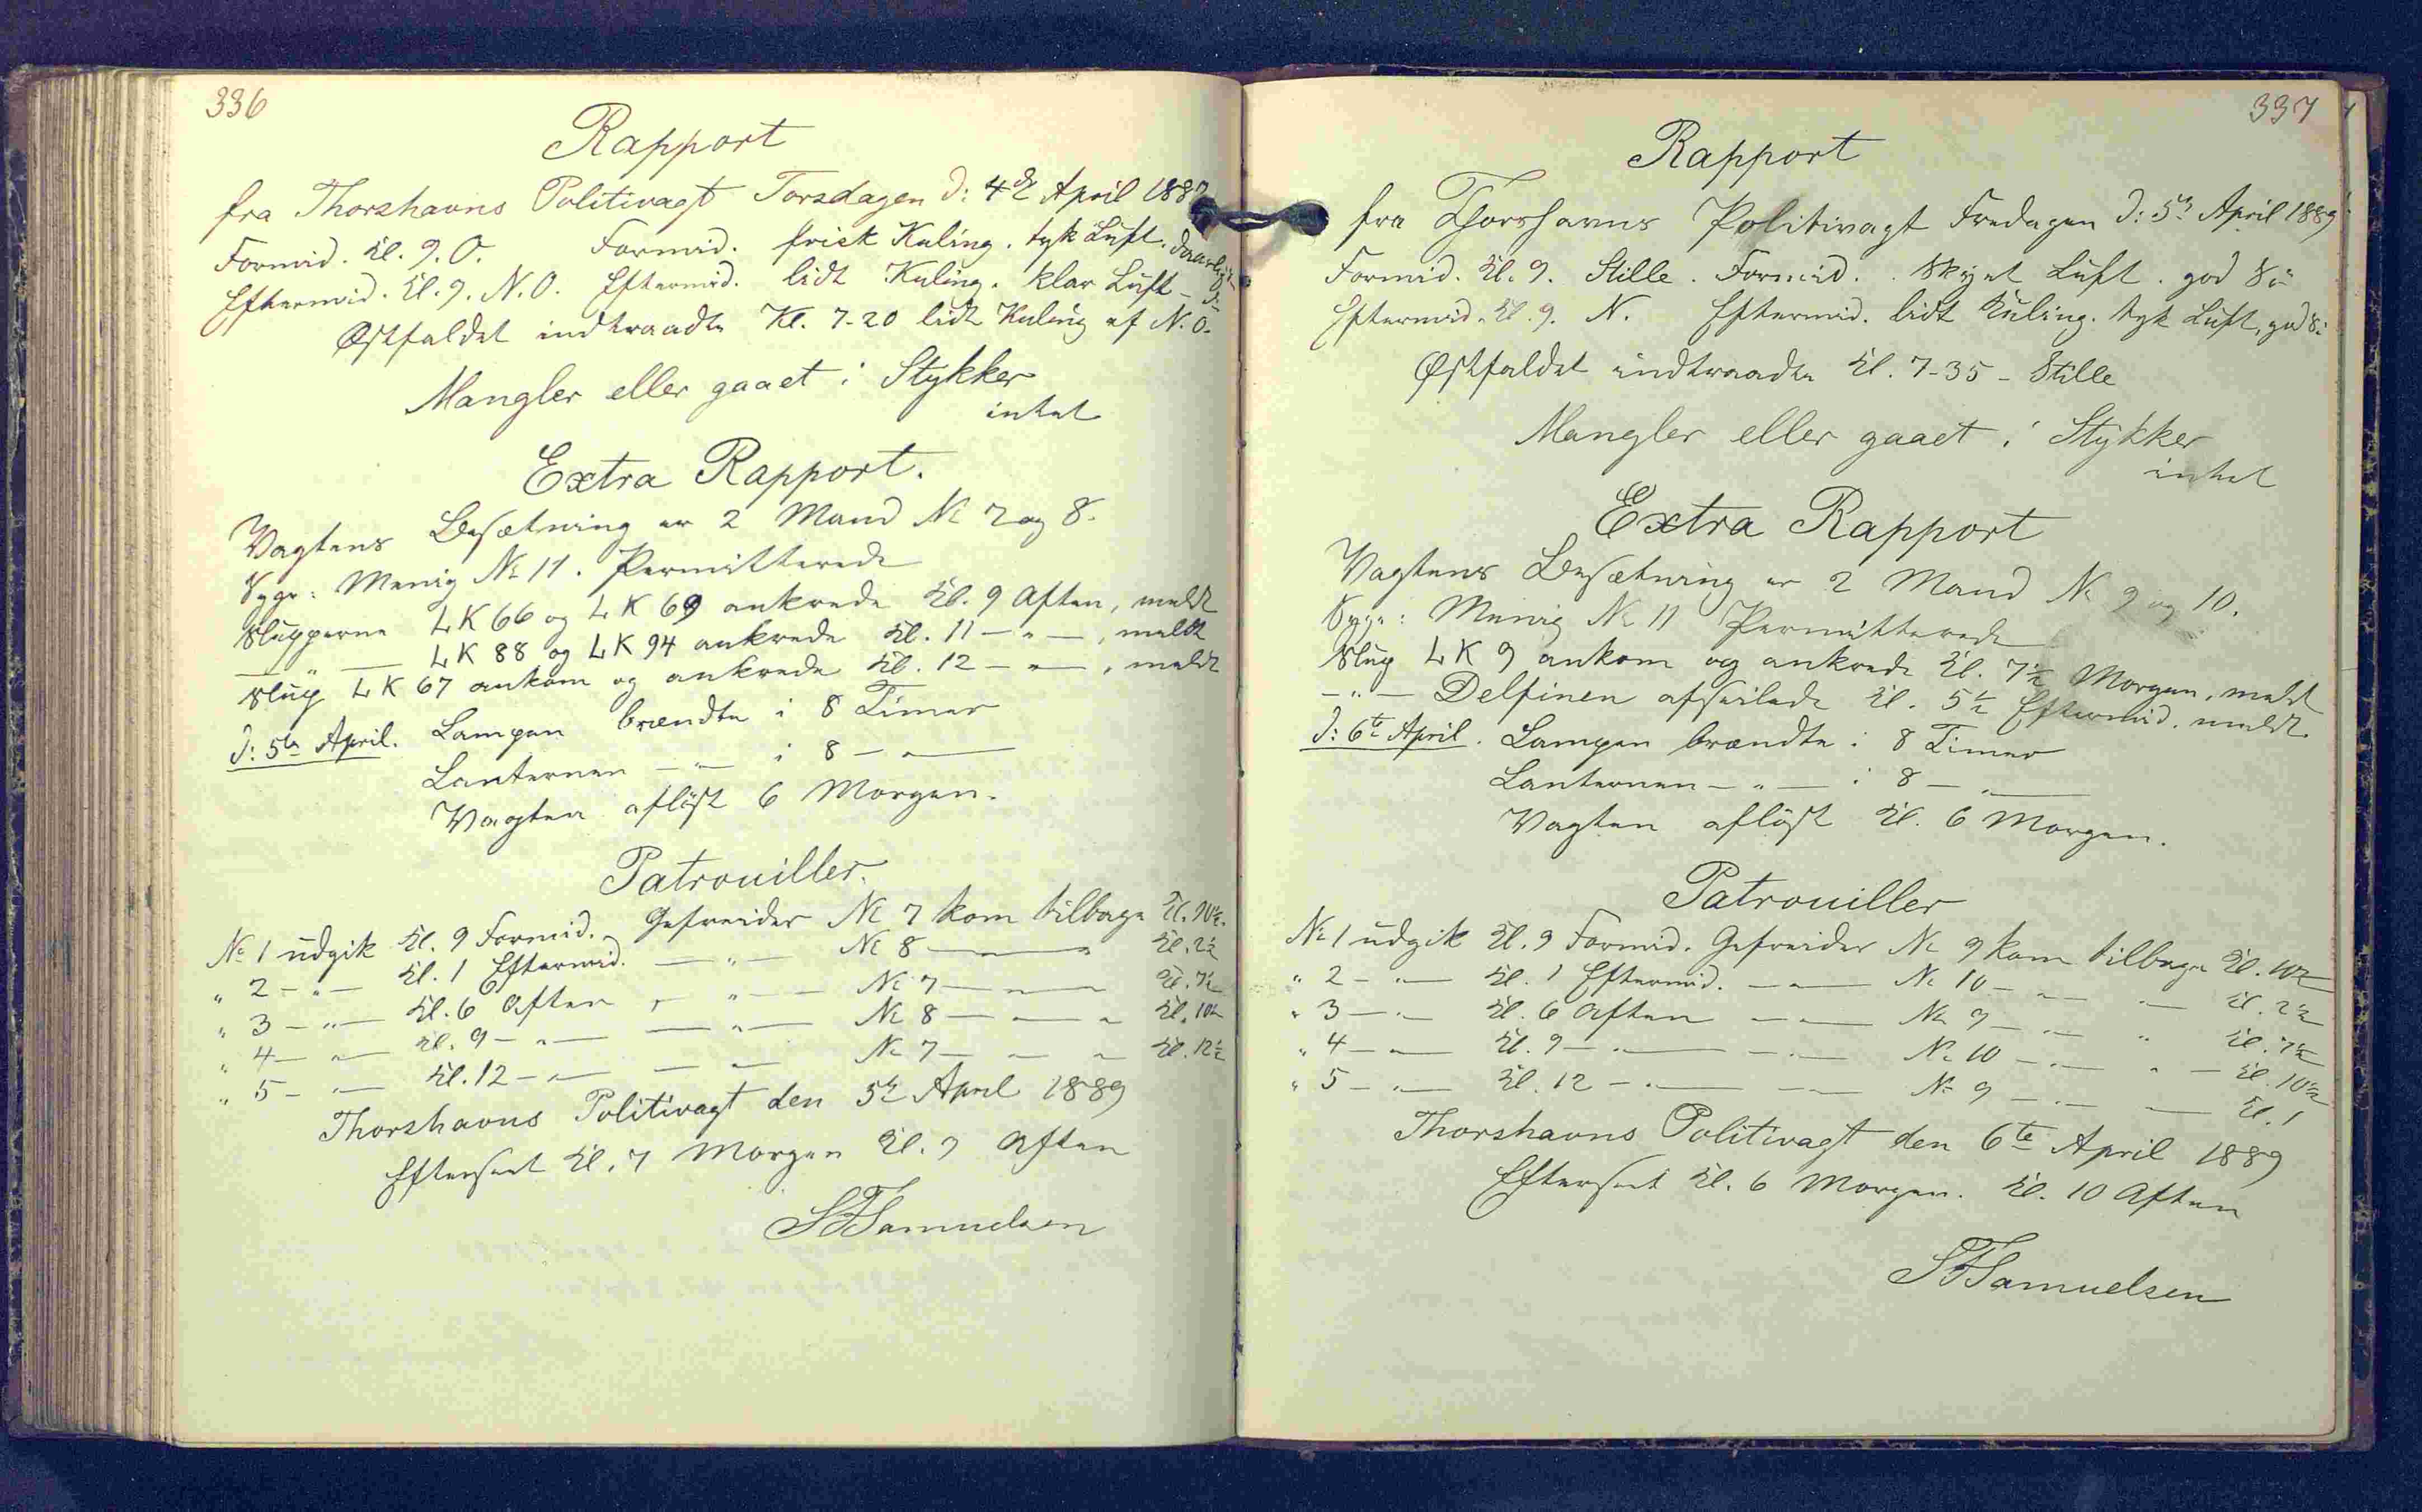 336
Rapport
fra Thorshavns Politivagt Torsdagen d: 4de April 1889
Formid. Kl. 9. O. Formid. frisk Kuling. tyk Luft. daarlig Sö
Eftermid. Kl. 9. N.O. Eftermid. lidt Kuling. klar Luft - d:
Østfaldet indtraadte Kl. 7-20 lidt Kuling af N.O.
Mangler eller gaaet i Stykker
intet
Extra Rapport.
Vagtens Besætning er 2 Mand No 7 og 8.
Syge: Menig No 11. Permitterede
Slupperne LK 66 og LK 69 ankrede Kl. 9 Aften, meldt
— " — LK 88 og LK 94 ankrede Kl. 11 — " — , meldt
Slup LK 67 ankom og ankrede Kl. 12 — " — , meldt
d: 5te April. Lampen brændte i 8 Timer
Lanternen — " — i 8 — " —
Vagten aflöst 6 Morgen.
Patrouiller.
No 1 udgik Kl. 9 Formid. Gefreider No 7 kom tilbage Kl. 10½.
" 2 - " — Kl. 1 Eftermid. — " — No 8 — " — " Kl. 2½
" 3 - " — Kl. 6 Aften — " — No 7 — " — Kl. 7½
" 4 — " — Kl. 9 - " — — " — No 8 — " — " Kl. 10½
" 5 - " — Kl. 12 - " — — " — No 7 — " — " Kl. 12½
Thorshavns Politivagt den 5te April 1889
Efterseet Kl. 7 Morgen Kl. 9 Aften
SFSamuelsen
337
Rapport
fra Thorshavns Politivagt Fredagen d: 5te April 1889
Formid. Kl. 9. Stille. Formid. Skyet Luft. god Sö
Eftermid. Kl. 9. N. Eftermid. lidt Kuling. tyk Luft, god Sö
Østfaldet indtraadte Kl. 7-35 - Stille
Mangler eller gaaet i Stykker
intet
Extra Rapport
Vagtens Besætning er 2 Mand No 9 og 10.
Syge: Menig No 11 Permitterede
Slup LK 9 ankom og ankrede Kl. 7½ Morgen, meldt
— " — Delfinen afseilede Kl. 5½ Eftermid. meldt.
d: 6te April. Lampen brændte i 8 Timer
Lanternen — " — i 8 — " —
Vagten aflöst Kl. 6 Morgen.
Patrouiller
No 1 udgik Kl. 9 Formid. Gefreider No 9 kom tilbage Kl. 10½
" 2 - " — Kl. 1 Eftermid. — " — No 10 — " — " — Kl. 2½
" 3 — " — Kl. 6 Aften — " — No 9 — " — " Kl. 7½
" 4 — " — Kl. 9 — " — — " — No 10 — " — " — Kl. 10½
" 5 — " — Kl. 12 — " — — " — No 9 — " — — Kl. 1
Thorshavns Politivagt den 6te April 1889
Efterseet Kl. 6 Morgen. Kl. 10 Aften
SFSamuelsen